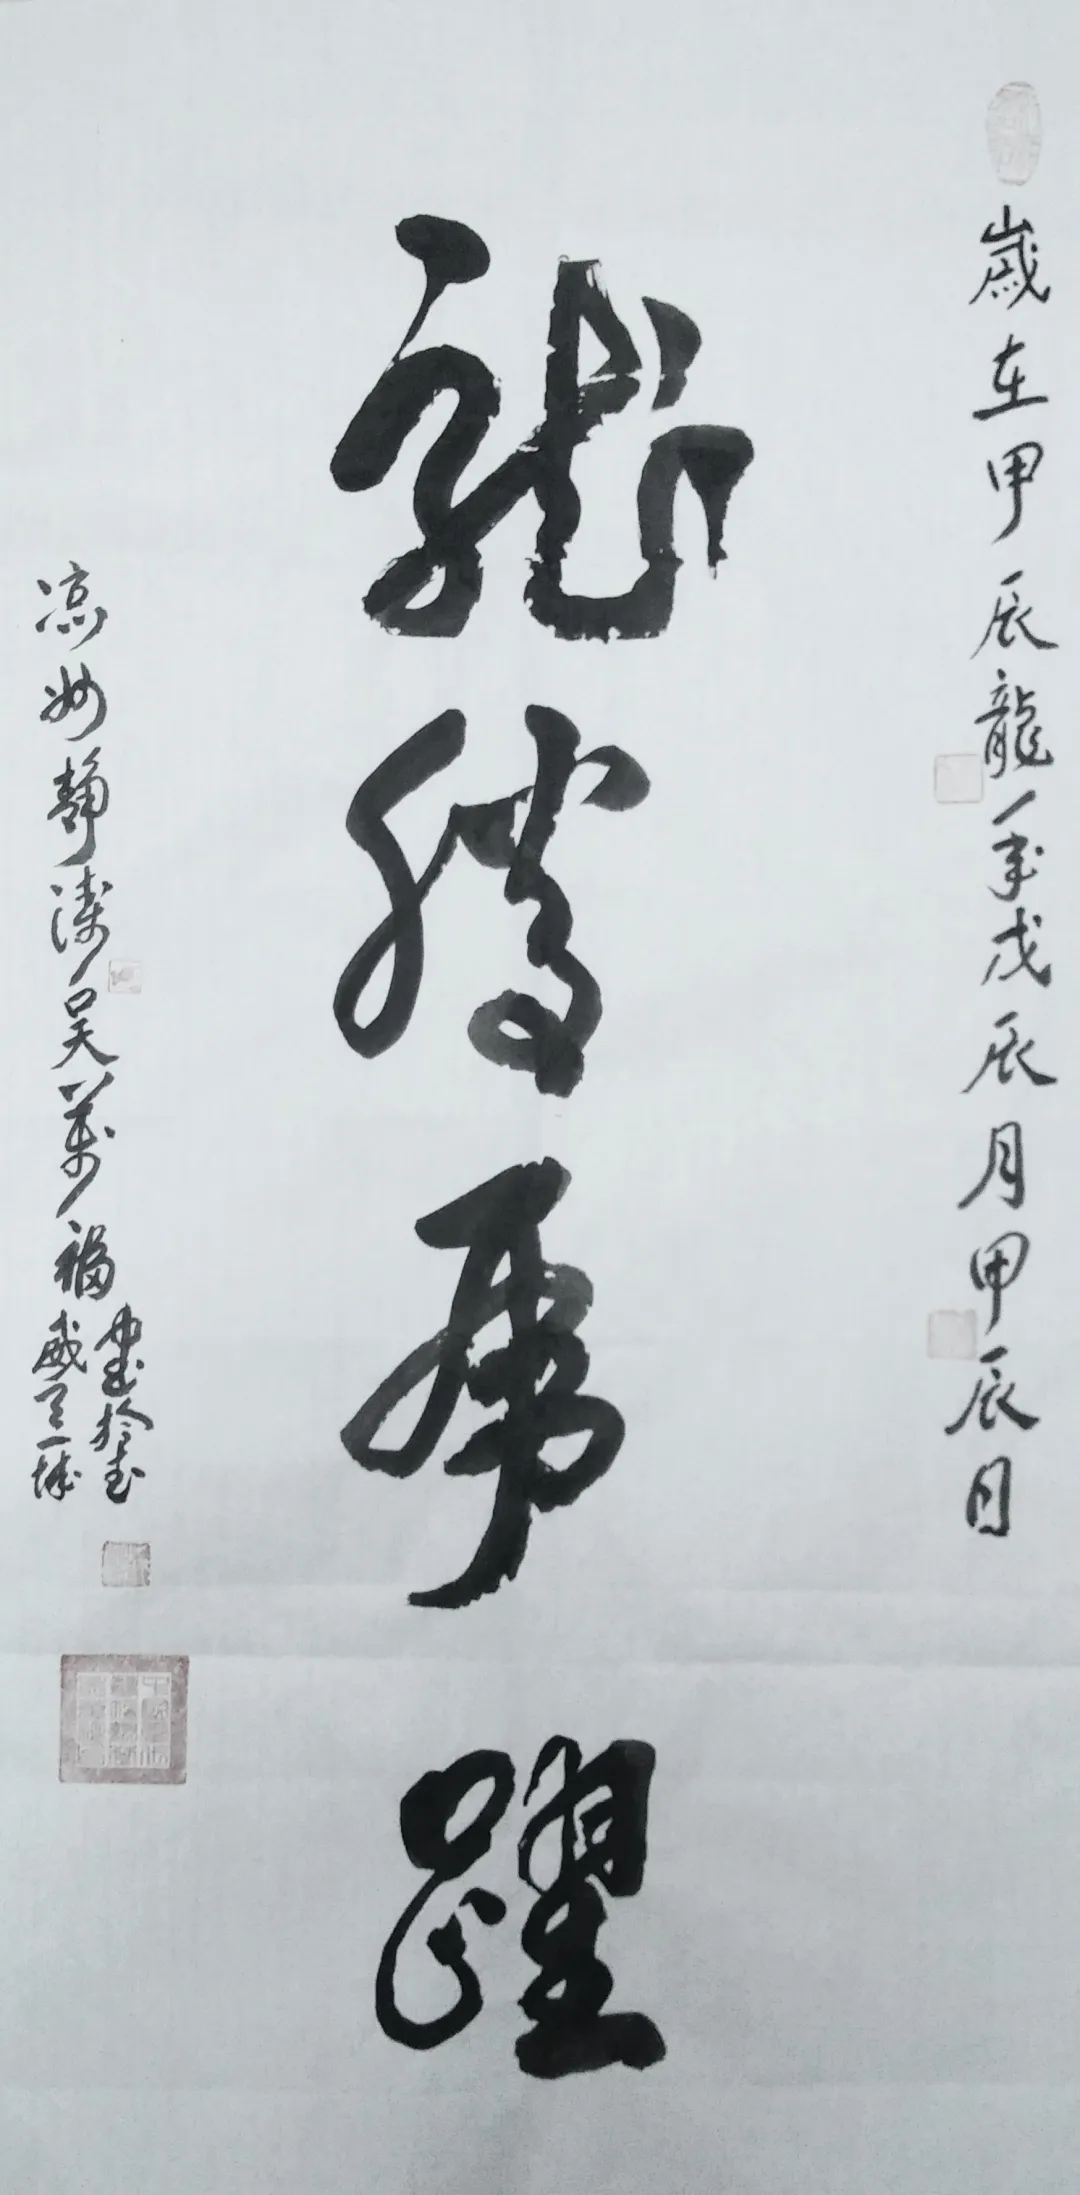 歲在甲辰龍年戊辰月甲辰日
龍騰虎躍
凉州靜濤吳萬福
書於武
威天城